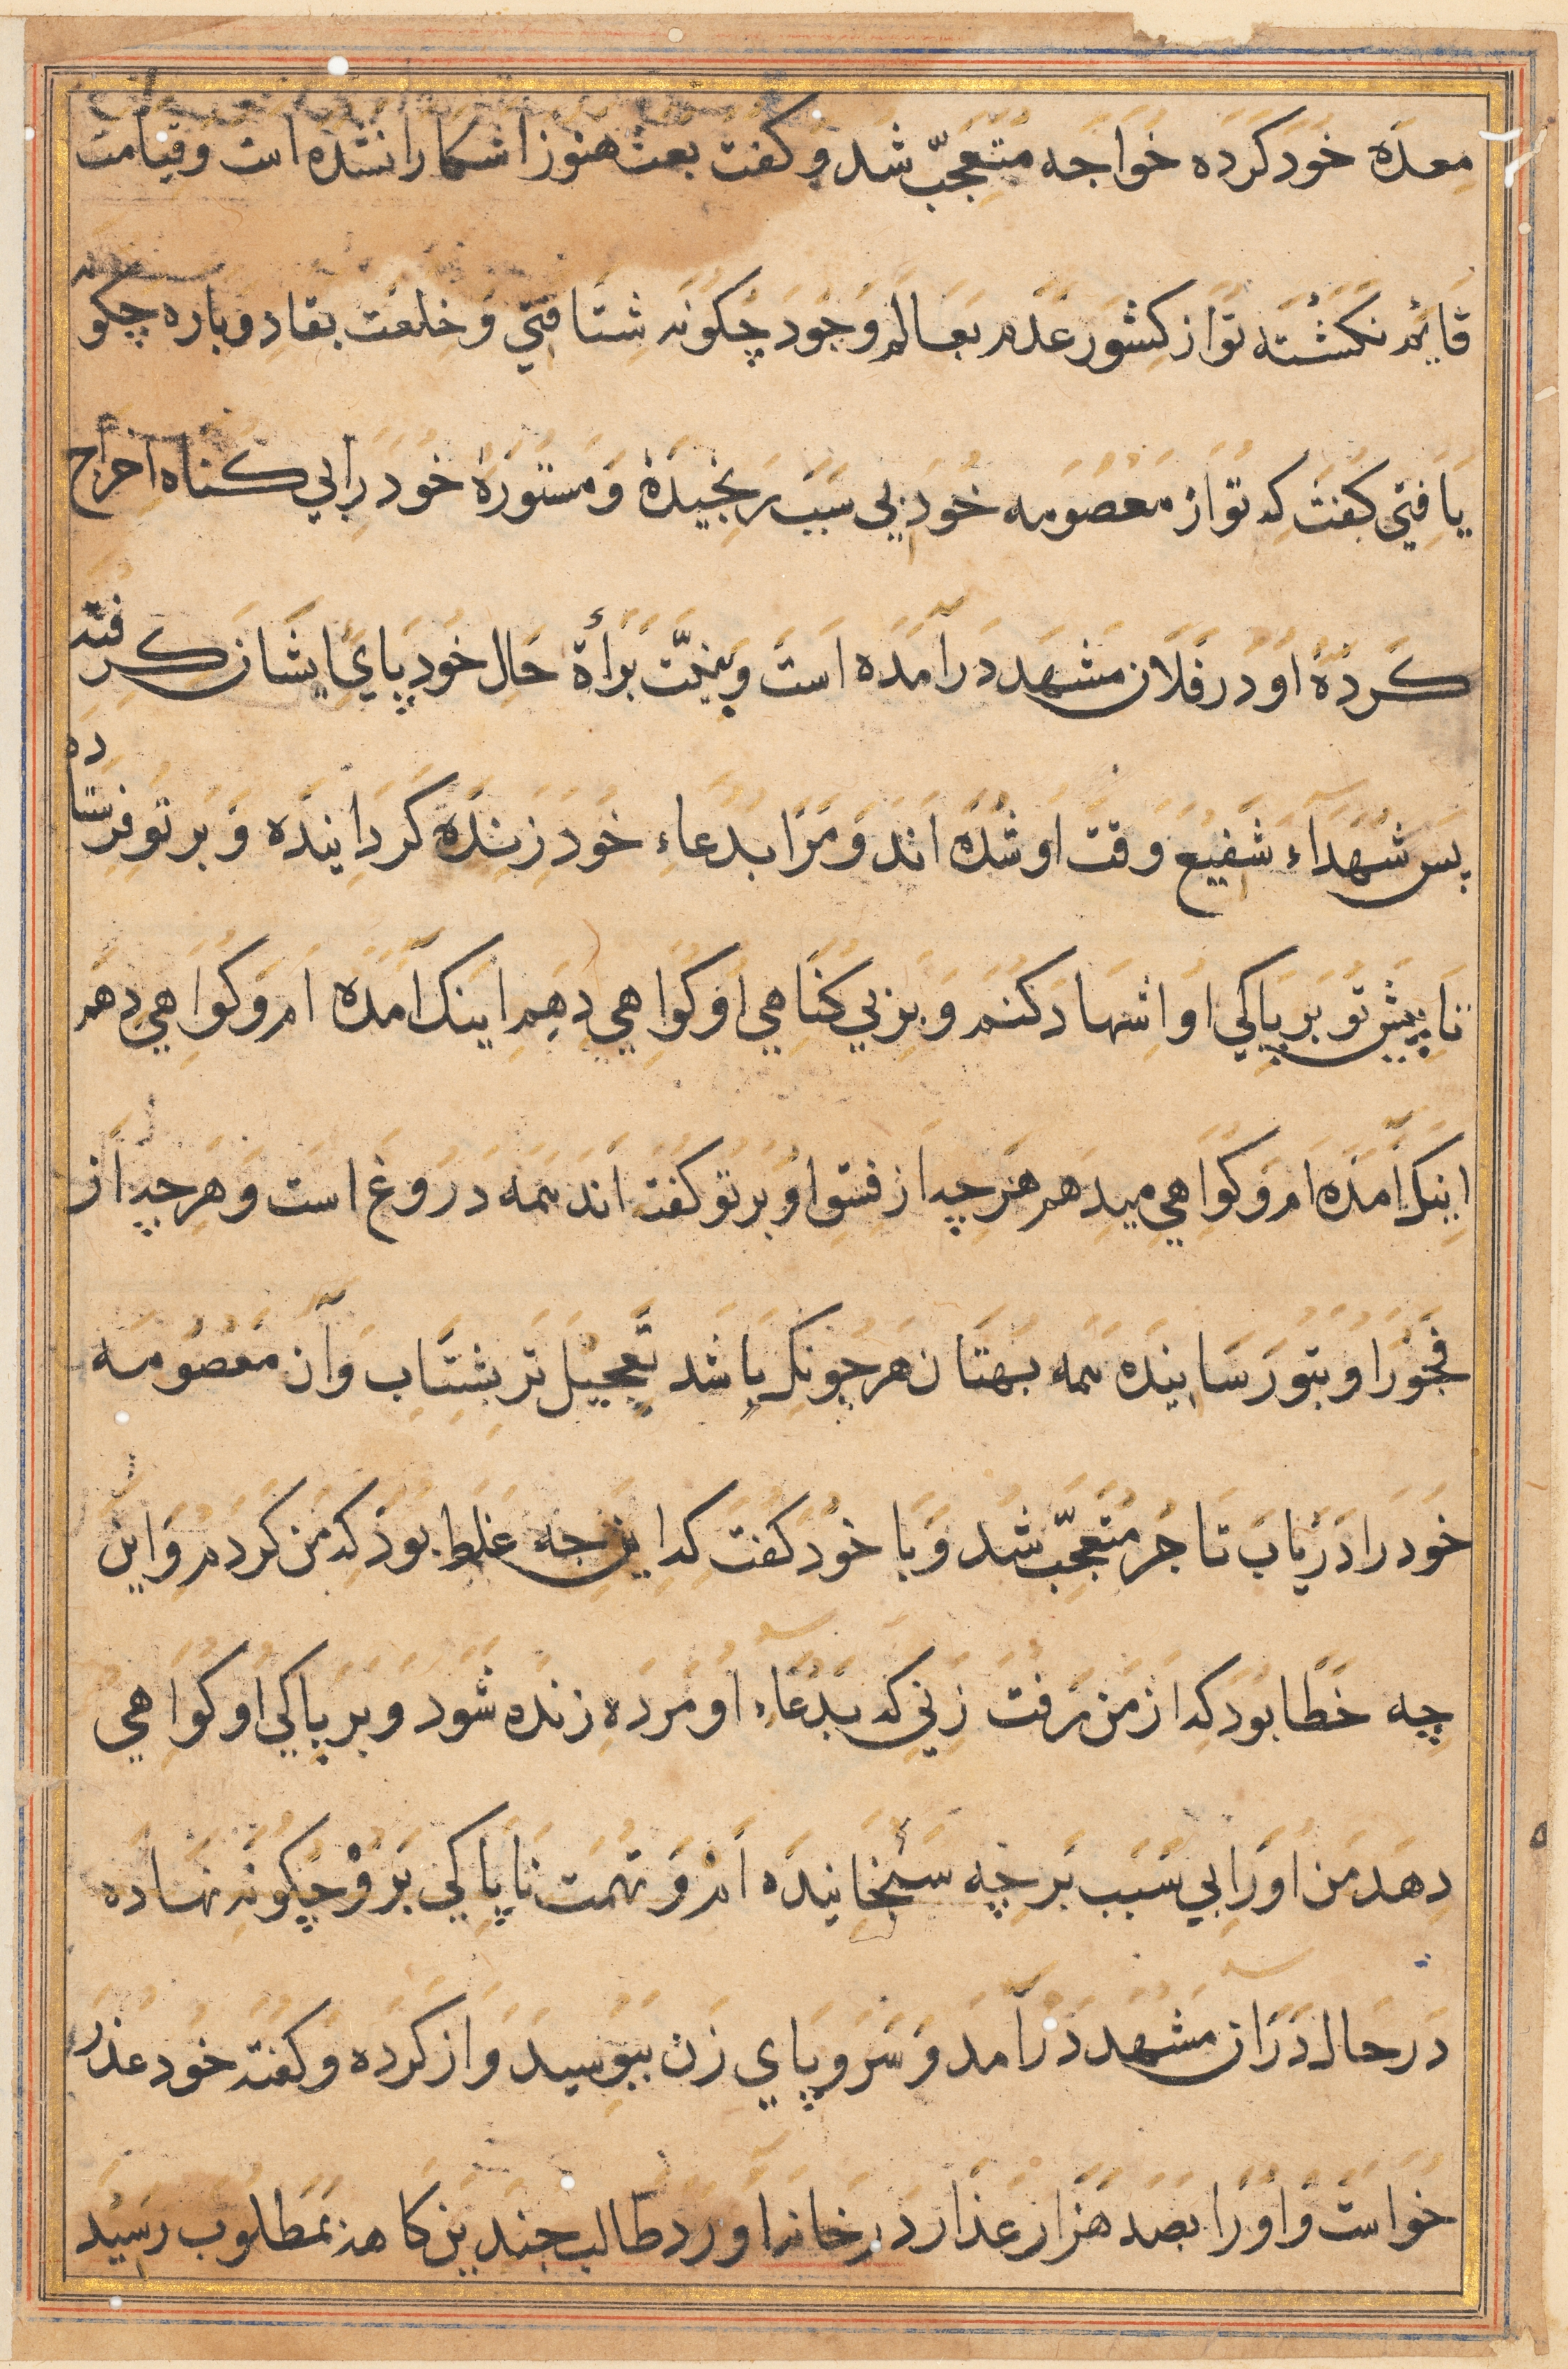 معده خود کرده خواجه متعجّب شد و کفت بعث هنوز اشکارا نشده است و قیامت
قایم نکشته تو از کشور عدم بعالم وجود چکونه شتافتي و خلعت بقا دوباره چکونه
یافتي کفت که تو از معصومه خود بي سبب رنجیدۀ و مستورۀ خود را بي کناه اخراج
کردۀ او در فلان مشهد درآمده است و بنیّت برأة حال خود پاي ایشان کرفته
پس شهدآء شفیع وقت او شده اند و مرا بدعاء خود زنده کردانیده و بر تو فرستاده
تا پیش تو بر پاکي او اشهاد کنم و بر بي کناهي او کواهي دهم اینک آمده ام و کواهي دهم
اینک آمده ام و کواهي میدهم هرچه از فسق او بر تو کفته اند همه دروغ است و هرچه از
فجور او بتو رسانیده همه بهتان هرچونکه باشد بتعجیل تر بشتاب و آن معصومه
خود را دریاب تاجر متعجّب شد و با خود کفت که این چه غلط بود که من کردم و این
چه خطا بود که از من رفت زني که بدعاء او مرده زنده شود و بر پاکي او کواهي
دهد من او را بي سبب بر چه سئخانیده ام و تهمت ناپاکي برو چکونه نهاده
در حال در آن مشهد درآمد و سر و پاي زن ببوسید و از کرده و کفته خود عذر
خواست و او را بصد هزار عذار در خانه آورد طالب چندین کاهنه بمطلوب رسید